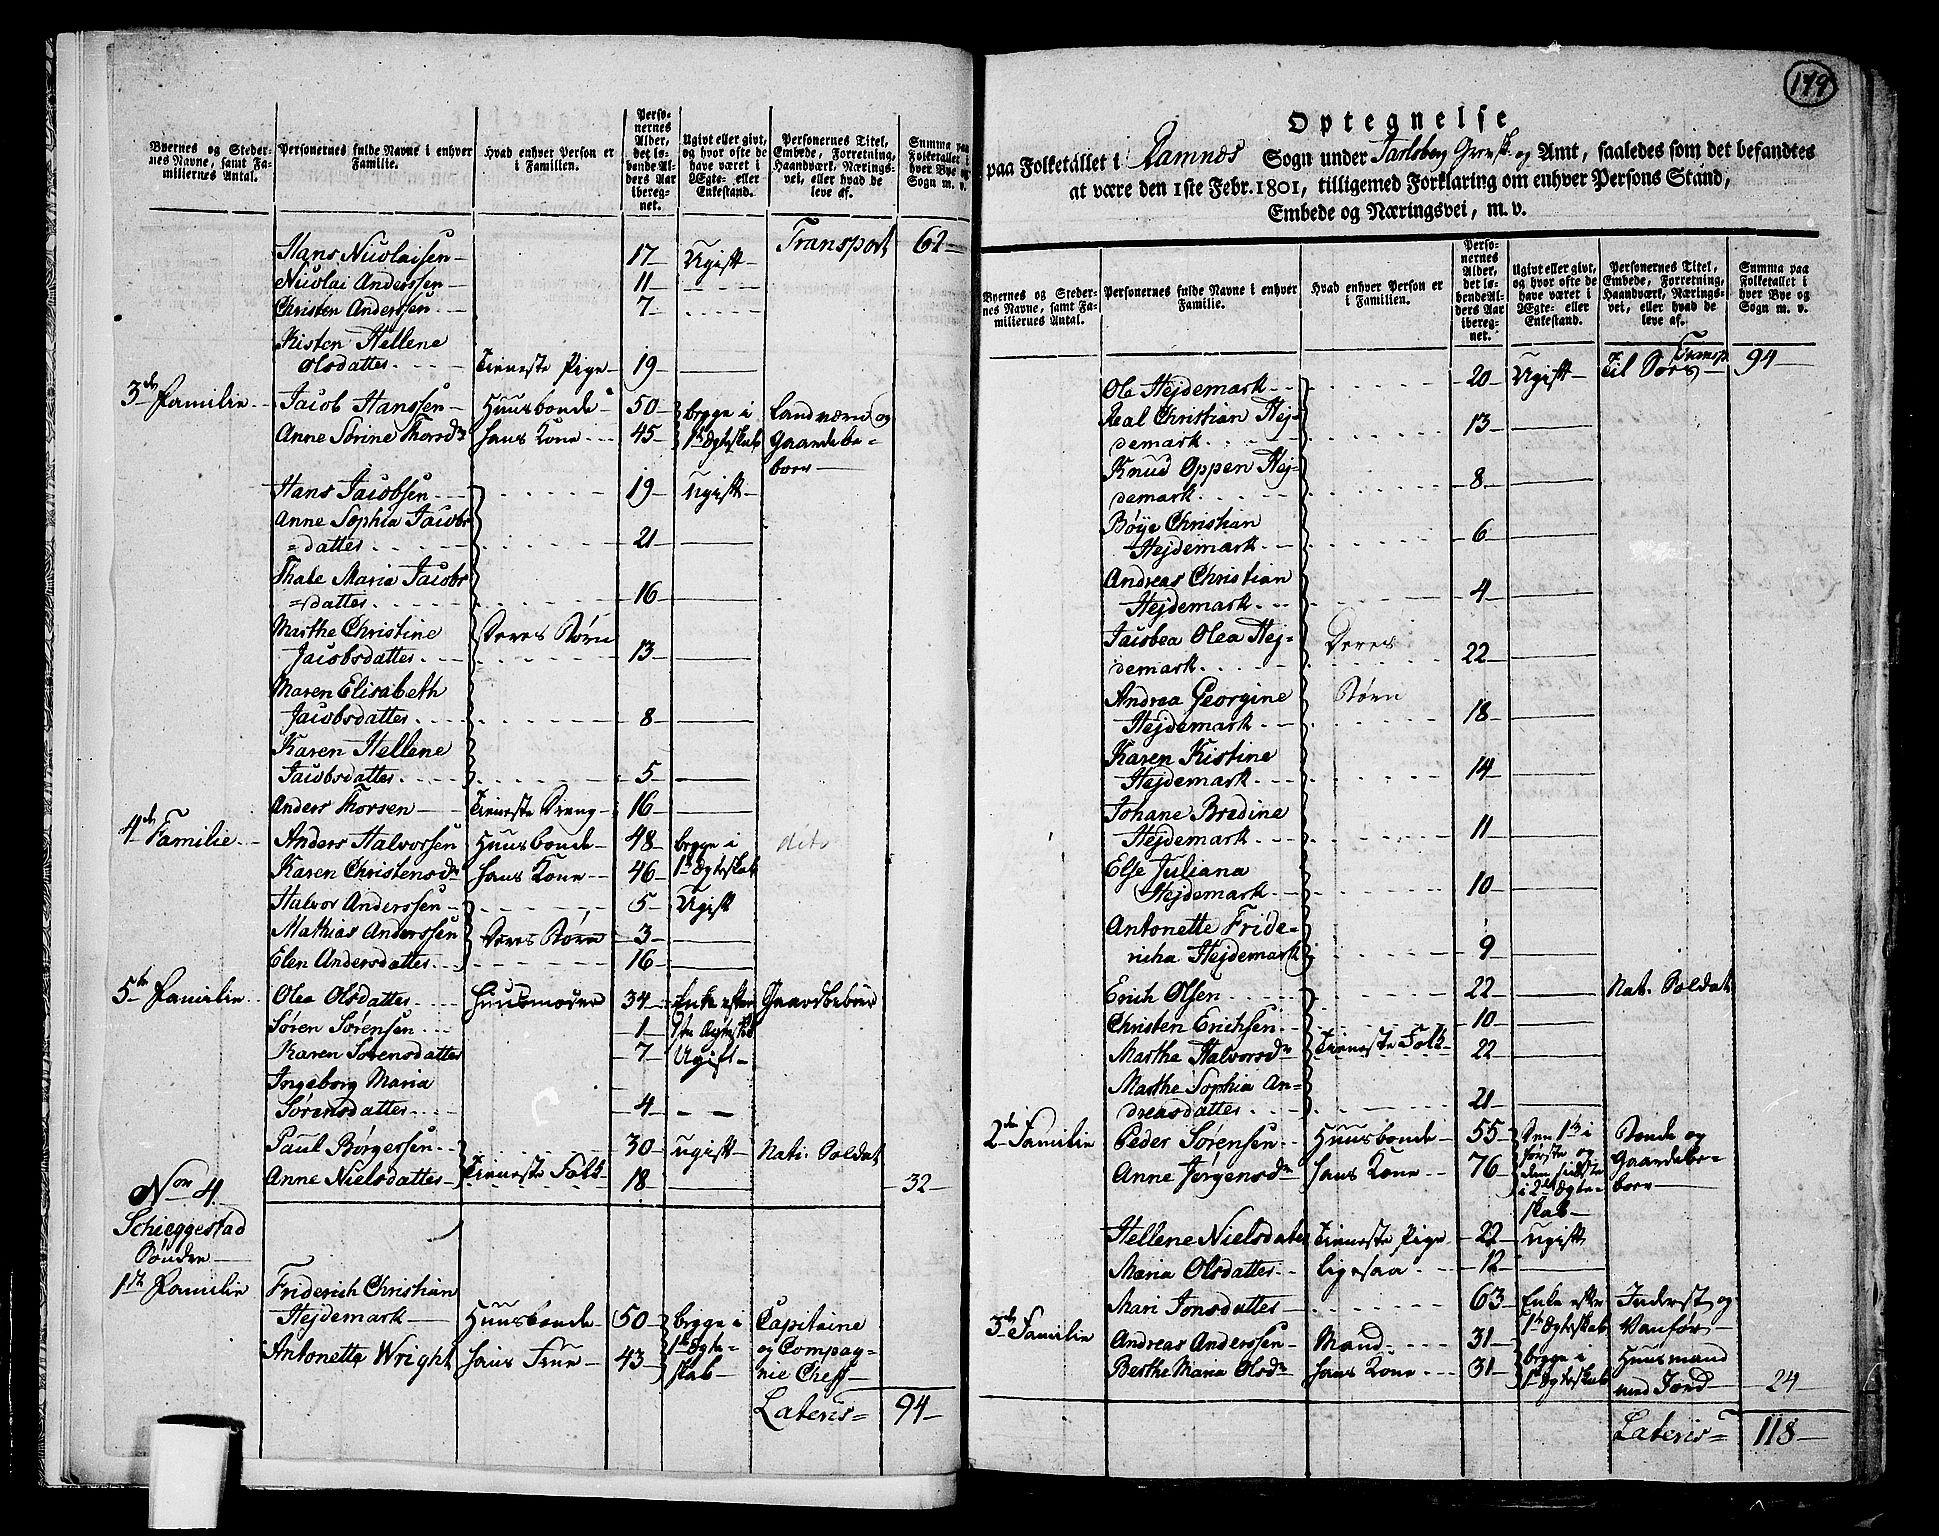 Byernes og Steder-
nes Navne, samt Fa-
miliernes Antal.
Personernes fulde Navne i enhver
Familie.
Hvad enhver Person er
i Familien.
Perso-
nernes
Alder,
det lø-
bende Al-
ders Aar
ibereg-
net.
Ugivt eller givt,
og hvor ofte de
have været i
Ægte- eller
Enkestand.
Personernes Titel,
Embede, Forretning,
Haandværk, Nærings-
vei, eller hvad de
leve af.
Summa paa
Folketallet i
hver Bye og
Sogn m. v.
Transport 62
Hans Nicolaisen 17 Ugift
Nicolai Anderssen 11
Christen Anderssen 7
Kisten Hellene
Olsdatter Tieneste Pige 19
3de Familie Jacob Hanssen Huusbonde 50 begge i Landværn og
Anne Sørine Thorsdr hans Kone 45 1te Ægteskab Gaardebe-
boer
Hans Jacobsen 19 Ugift
Anne Sophia Jacobs
=datter 21
Thale Maria Jacobs
=datter 16
Marthe Christine Deres Børn
Jacobsdatter 13
Maren Elisabeth
Jacobsdatter 8
Karen Hellene
Jacobsdatter 5
Anders Thorsen Tieneste Dreng 16
4de Familie Anders Halvorsen Huusbonde 48 begge i dito
Karen Christensdr hans Kone 46 1te Ægteskab
Halvor Anderssen 5 Ugift
Mathias Anderssen Deres Børn 3
Elen Andersdatter 16
5te Familie Olea Olsdatter Huusmoder 34 Enke efter Gaardbeboer
Søren Sørensen 1 1te Ægteskab
Karen Sørensdatter 7 Ugift
Ingeborg Maria
Sørensdatter 4
Paul Børgersen 30 ugift Nati. Soldat
Anne Nielsdatter Tieneste Folk 18 32
Non 4
Schieggestad
Søndre
1te Familie Friderich Christian
Hejdemark Huusbonde 50 begge i Capitaine
Antonette Wright hans Frue 43 1te Ægte- og Compag-
skab nie Cheff
Lateris= 94
179
Optegnelse
paa Folketallet i Ramnæs Sogn under Jarlsberg Grevsk. og Amt, saaledes som det befandtes
at være den 1ste Febr. 1801, tilligemed Forklaring om enhver Persons Stand,
Embede og Næringsvei, m. v.
Byernes og Steder-
nes Navne, samt Fa-
miliernes Antal.
Personernes fulde Navne i enhver
Familie.
Hvad enhver Person er
i Familien.
Perso-
nernes
Alder,
det lø-
bende Al-
ders Aar
ibereg-
net.
Ugivt eller givt,
og hvor ofte de
have været i
Ægte- eller
Enkestand.
Personernes Titel,
Embede, Forretning,
Haandværk, Nærings-
vei, eller hvad de
leve af.
Summa paa
Folketallet i
hver Bye og
Sogn m. v.
Transp. 94
Ole Hejdemark 20 Ugift Til Søes
Real Christian Hej-
demark 13
Knud Oppen Hej-
demark 8
Bøye Christian
Hejdemark 6
Andreas Christian
Hejdemark 4
Jacobea Olea Hej- Deres
demark 22
Andrea Georgine Børn
Hejdemark 18
Karen Kistine
Hejdemark 14
Johane Bredine
Hejdemark 11
Else Juliana
Hejdemark 10
Antonette Fride-
richa Hejdemark 9
Erich Olsen 22 Nati. Soldat
Christen Erichsen 10
Marthe Halvorsdr Tieneste Folk 22
Marthe Sophia An-
dreasdatter 21
2de Familie Peder Sørensen Huusbonde 55 Den 1te i Bonde og
Anne Jørgensdr hans Kone 76 første og Gaardebe-
den sidste boer
i 2det Ægte-
skab
Hellene Nielsdater Tieneste Pige 22 ugift
Maria Olsdatter ligesaa 12
Mari Jonsdatter 63 Enke efter Inderst og
1te Ægteskab Vanfør
3de Familie Andreas Anderssen Mand 31 begge i Huusmand
Berthe Maria Olsdr hans Kone 31 1te Ægteskab med Jord 24
Lateris= 118